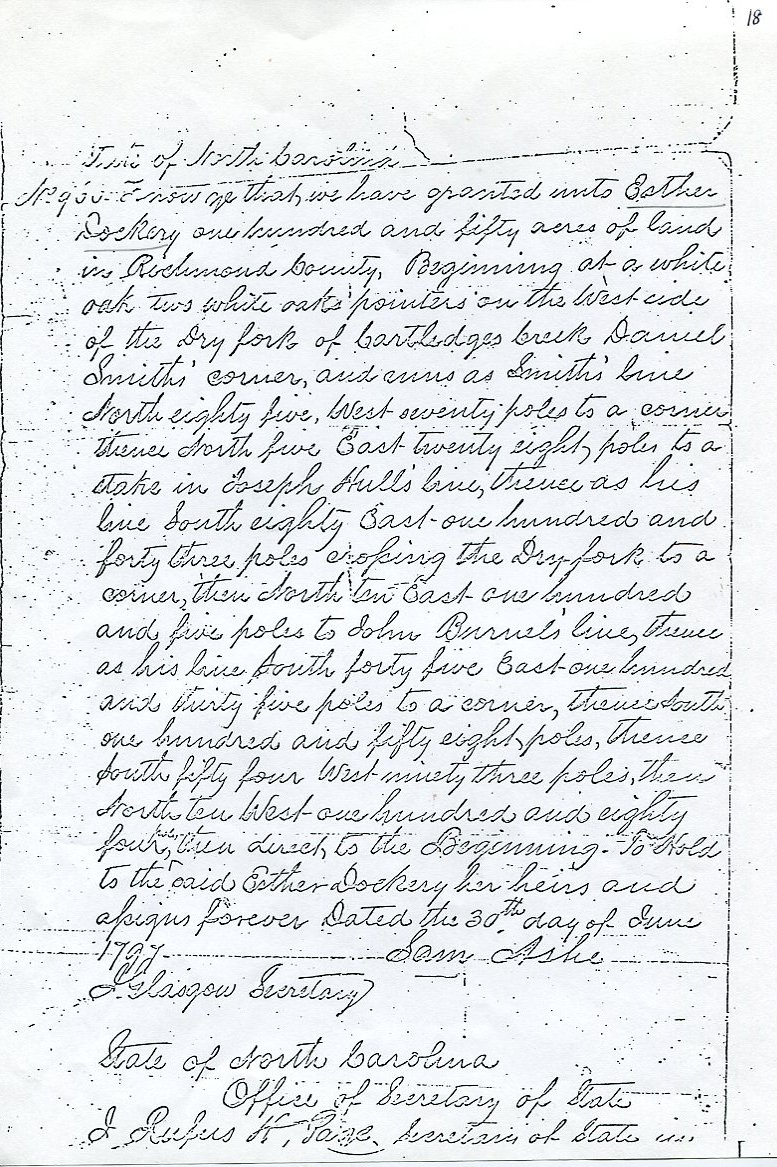 18
State of North Carolina
Know ye that we have granted unto Esther
Dockery one hundred and fifty acres of land
in Richmond County, Beginning at a white
oak two white oaks pointers on the West side
of the Dry fork of Cartledges Creek Daniel
Smiths' corner, and runs as Smiths' line
North eighty five, West seventy poles to a corner
thence North five East twenty eight, poles to a
stake in Joseph Hull's line, thence as his
line South eighty East one hundred and
forty three poles crossing the Dry fork to a
corner, then North ten East one hundred
and five poles to John Burnel's line, thence
as his line South forty five East one hundred
and thirty five poles to a corner, thence South
one hundred and fifty eight, poles, thence
South fifty four West ninety three poles, then
North ten West one hundred and eighty
four, then direct, to the Beginning. To Hold
to the said Esther Dockery her heirs and
assigns forever Dated the 30th day of June
1797 Sam Ashe
J Glasgow Secretary
State of North Carolina
Office of Secretary of State
I Rufus K, Page Secretary of State in